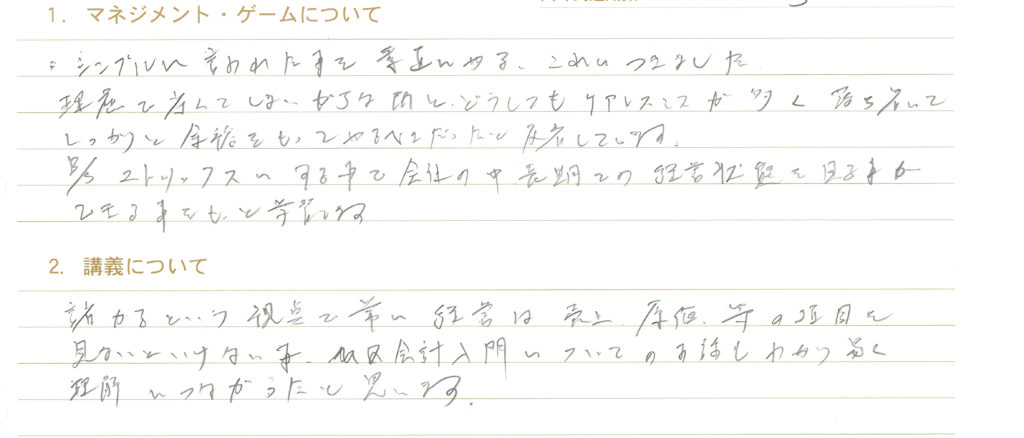 1. マネジメント・ゲームについて
: シンプルに言われた事を素直にやる。これにつきました
理屈で考えてしまいがちな所と、どうしてもケアレスミスが多く 落ち着いて
しっかりと余裕をもってやるべきだったと反省しています。
B/S ストリックスに する事で会社の中長期での経営状態を見る事が
できる事をもっと学習します
2. 講義について
儲かるという視点で常に経営は売上、原価、等の項目を
見ないといけない事、MQ会計入門についてのお話もわかり易く
理解につながったと思います。